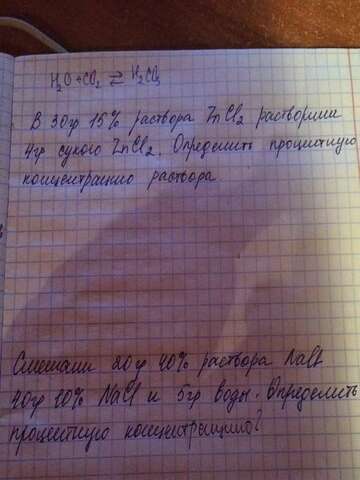 H₂O + CO₂ ⇄ H₂CO₃
В 30гр 15% раствора ZnCl₂ растворили
4гр сухого ZnCl₂. Определить процентную
концентрацию раствора
Смешали 20гр 40% раствора NaCl
40гр 10% NaCl и 5гр воды. Определить
процентную концентрацию?